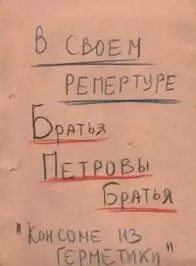 В СВОЕМ
РЕПЕРТУРЕ
БРАТЬЯ
ПЕТРОВЫ
БРАТЬЯ
"КОНСОМЕ ИЗ
ГЕРМЕТИКИ"